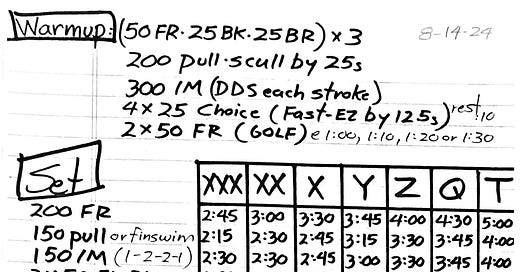 Warmup: (50 FR·25 BK·25 BR) × 3
8-14-24
200 pull·scull by 25s
300 IM (DDS each stroke)
4 × 25 Choice (Fast-EZ by 12.5s) rest :10
2 × 50 FR (GOLF) @ 1:00, 1:10, 1:20 or 1:30
Set XXX XX X Y Z Q T
200 FR 2:45 3:00 3:30 3:45 4:00 4:30 5:00
150 pull or fins swim 2:15 2:30 2:45 3:15 3:30 3:45 4:00
150 IM (1-2-2-1) 2:30 2:30 2:45 3:00 3:30 3:45 4:00